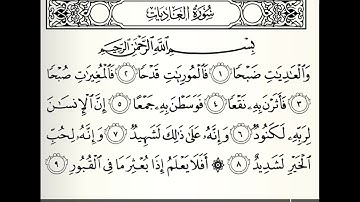 سُورَةُ العَادِيَات
بِسْمِ اللَّهِ الرَّحْمَٰنِ الرَّحِيمِ
وَالْعَادِيَاتِ ضَبْحًا ١ فَالْمُورِيَاتِ قَدْحًا ٢ فَالْمُغِيرَاتِ صُبْحًا
٣ فَأَثَرْنَ بِهِ نَقْعًا ٤ فَوَسَطْنَ بِهِ جَمْعًا ٥ إِنَّ الْإِنسَانَ
لِرَبِّهِ لَكَنُودٌ ٦ وَإِنَّهُ عَلَىٰ ذَٰلِكَ لَشَهِيدٌ ٧ وَإِنَّهُ لِحُبِّ
الْخَيْرِ لَشَدِيدٌ ٨ ۞ أَفَلَا يَعْلَمُ إِذَا بُعْثِرَ مَا فِي الْقُبُورِ ٩